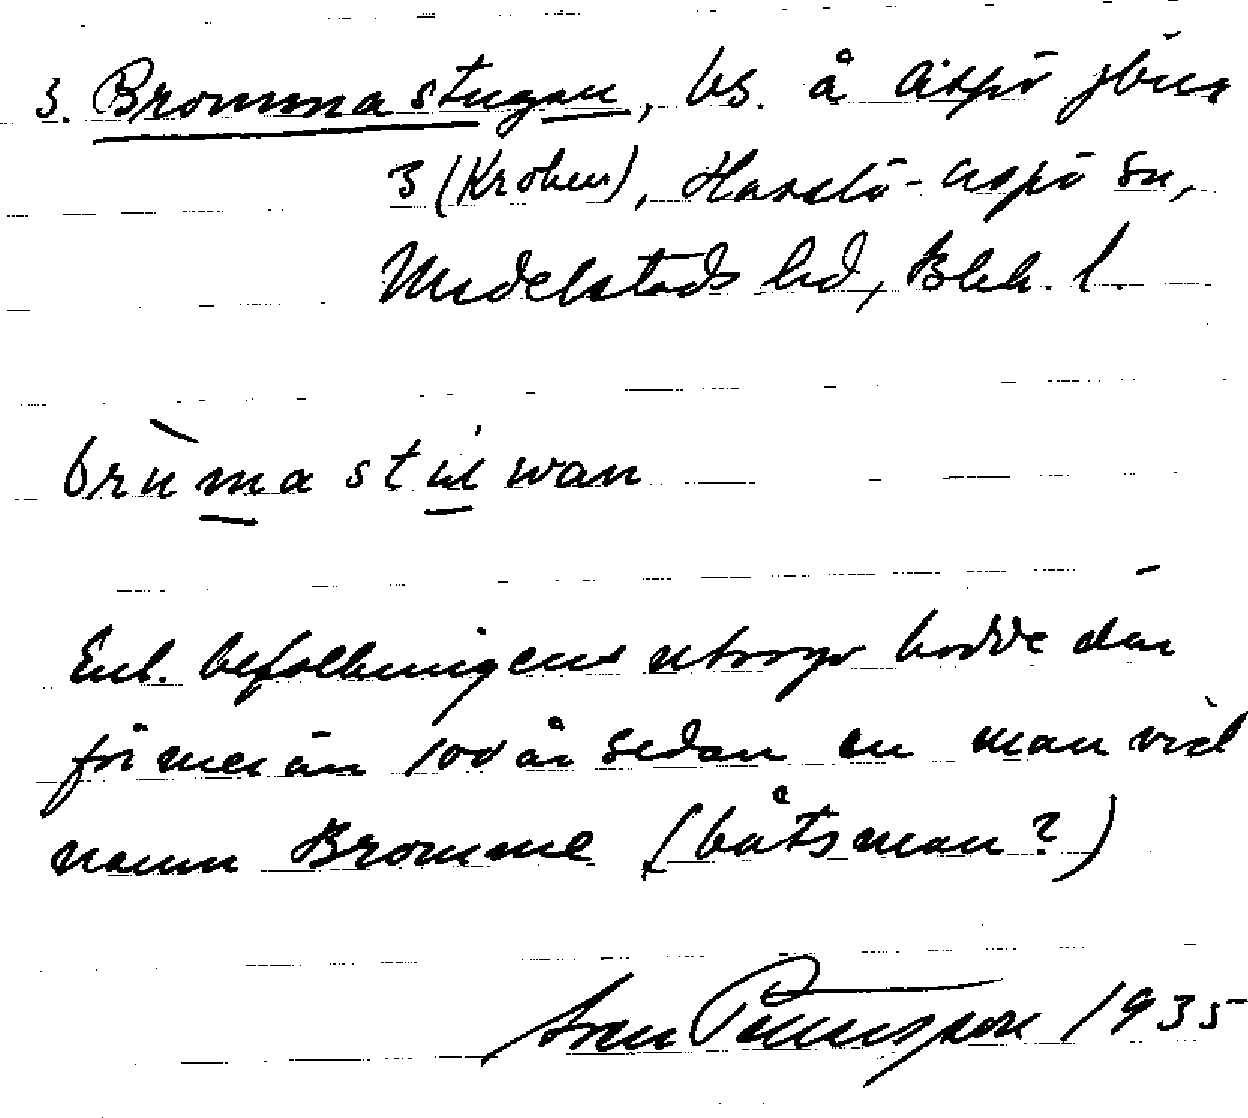 3. Brommastugan, bs. å Aspö jbnr
3 (Kroken), Hasslö-Aspö sn,
Medelstads hd, Blek. l.
brùma stú wan
Enl. befolkningens utsago bodde där
för mer än 100 år sedan en man vid
namn Bromme (båtsman?)
Sven 1935